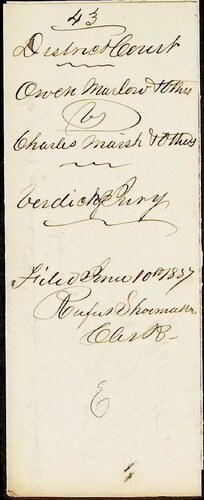 43
District Court
Owen Marlow & Others
vs
Charles Marsh & Others
Verdict of Jury
Filed June 10th 1857
Rufus Shoemaker
Clerk
E